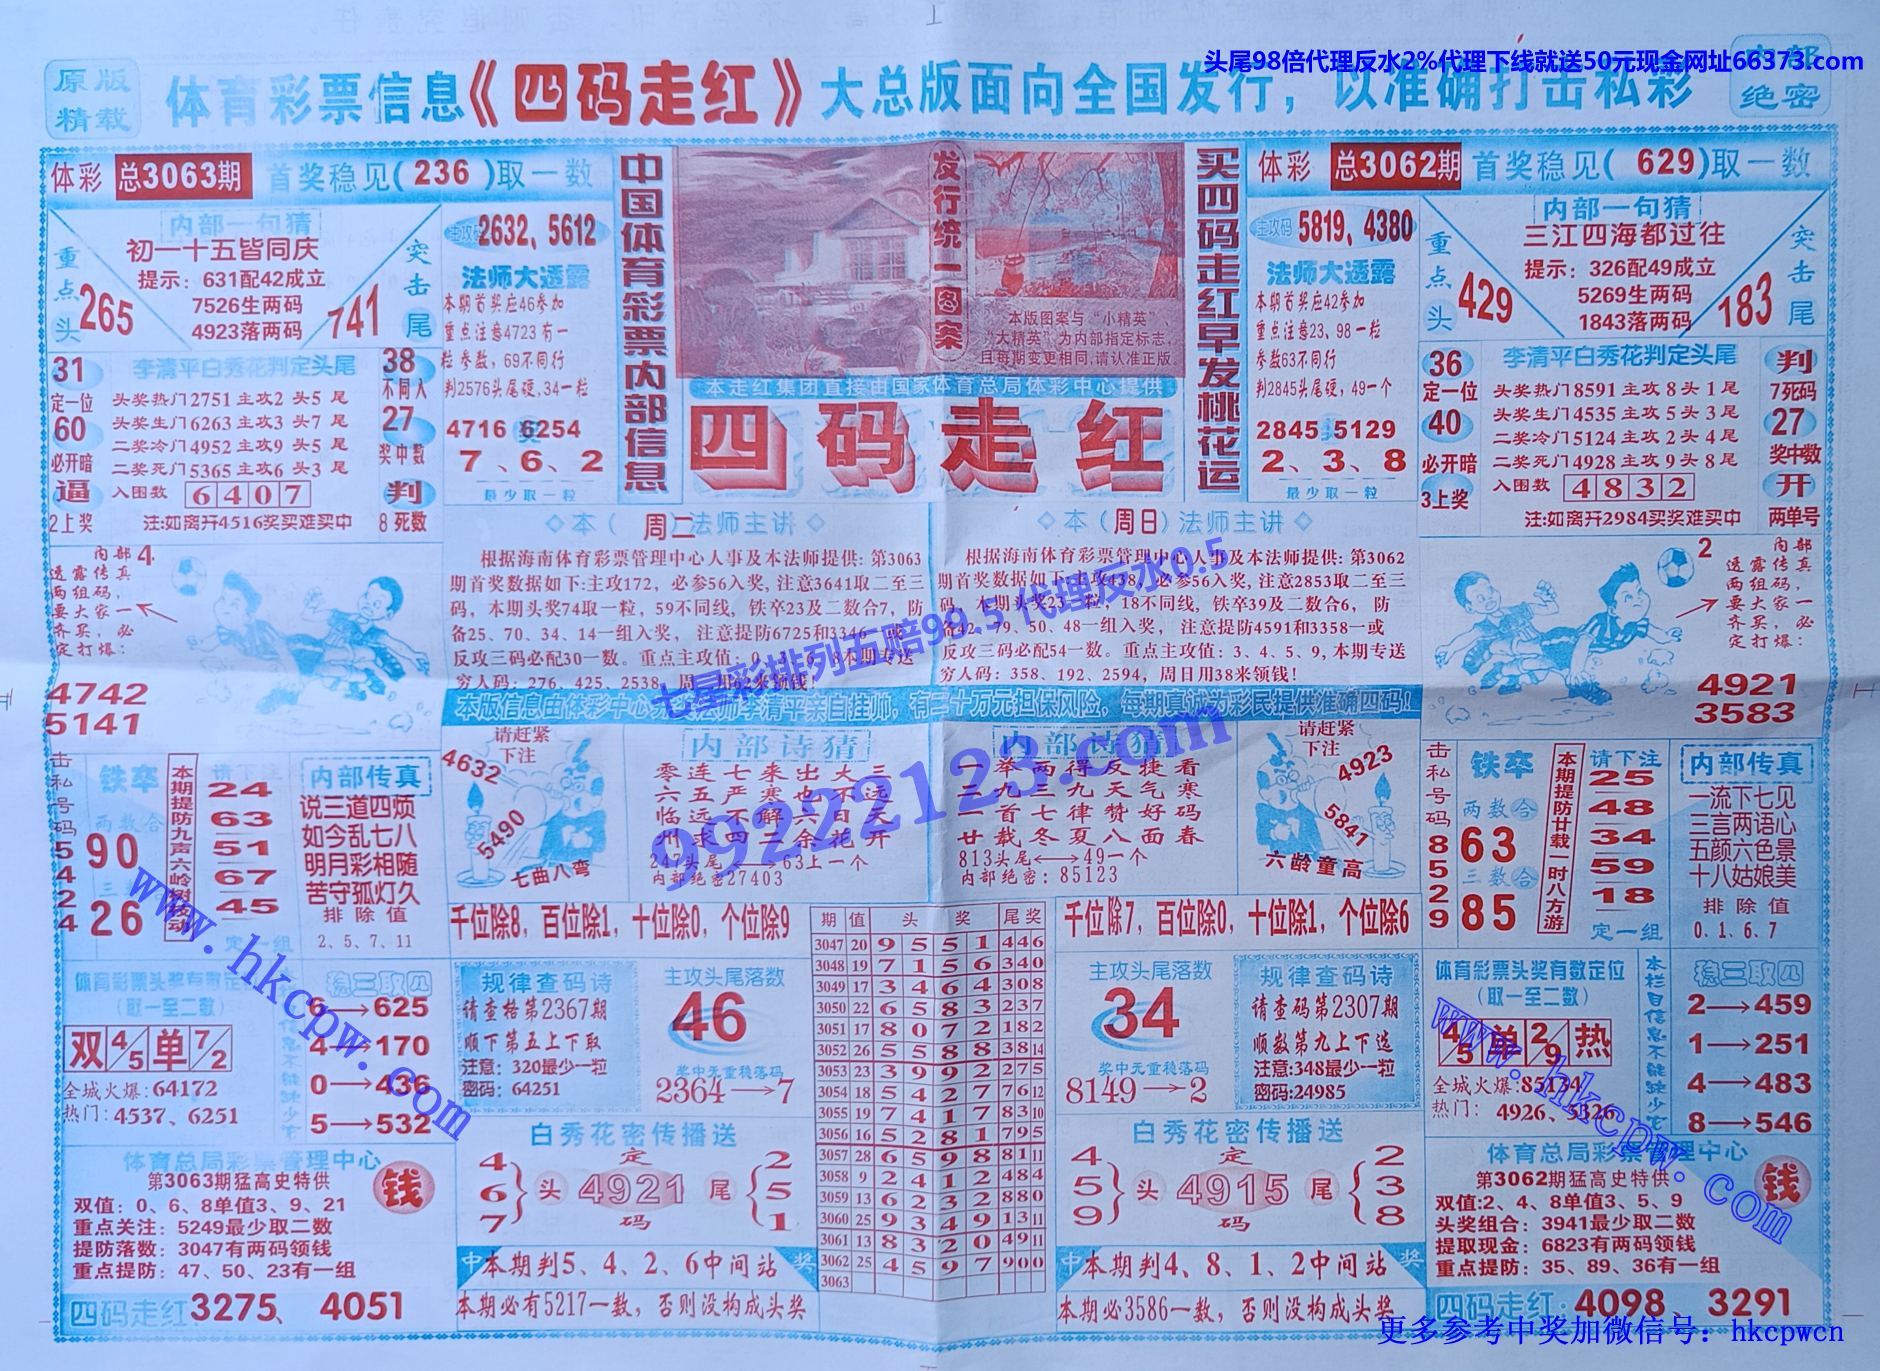 头尾98倍代理反水2%代理下线就送50元现金网址66373.com
原版
精载
体育彩票信息《四码走红》大总版面向全国发行，以准确打击私彩
内部
绝密
体彩 总3063期 首奖稳见(236)取一数
内部一句猜
初一十五皆同庆
提示：631配42成立
7526生两码
4923落两码
重点头
265
突击尾
741
主攻码 2632、5612
法师大透露
本期首奖应46参加
重点注意4723有一
粒参数，69不同行
判2576头尾硬,34一粒
4716 6254
7、6、2
最少取一粒
31
定一位
60
必开暗
逼
2上奖
李清平白秀花判定头尾
头奖热门2751主攻2头5尾
头奖生门6263主攻3头7尾
二奖冷门4952主攻9头5尾
二奖死门5365主攻6头3尾
入围数 6407
注:如离开4516奖买难买中
38
不同入
27
奖中数
判
8死数
中国体育彩票内部信息
发行统一图案
本版图案与“小精英”、
“大精英”为内部指定标志,
且每期变更相同,请认准正版
本走红集团直接由国家体育总局体彩中心提供
四码走红
买四码走红早发桃花运
体彩 总3062期 首奖稳见(629)取一数
主攻码 5819、4380
法师大透露
本期首奖应42参加
重点注意23、98一粒
参数63不同行
判2845头尾硬，49一个
2845 5129
2、3、8
最少取一粒
内部一句猜
三江四海都过往
提示：326配49成立
5269生两码
1843落两码
重点头
429
突击尾
183
36
定一位
40
必开暗
3上奖
李清平白秀花判定头尾
头奖热门8591主攻8头1尾
头奖生门4535主攻5头3尾
二奖冷门5124主攻2头4尾
二奖死门4928主攻9头8尾
入围数 4832
注:如离开2984买奖难买中
判
7死码
27
奖中数
开
两单号
内部
透露传真
两组码，
要大家一
齐买，必
定打爆：
4
4742
5141
◇本(周二法师主讲◇
根据海南体育彩票管理中心人事及本法师提供：第3063
期首奖数据如下:主攻172，必参56入奖,注意3641取二至三
码，本期头奖74取一粒，59不同线，铁卒23及二数合7，防
备25、70、34、14一组入奖， 注意提防6725和3346一或
反攻三码必配30一数。重点主攻值：0、
8本期专送
穷人码：276、425、2538，周
用62来领钱!
◇本(周日)法师主讲◇
根据海南体育彩票管理中心人事及本法师提供：第3062
期首奖数据如下:主攻438，必参56入奖,注意2853取二至三
码，本期头奖23一粒，18不同线，铁卒39及二数合6，防
备42、79、50、48一组入奖， 注意提防4591和3358一或
反攻三码必配54一数。重点主攻值：3、4、5、9,本期专送
穷人码：358、192、2594，周日用38来领钱!
七星彩排列五赔99.5代理反水0.5
本版信息由体彩中心
法师李清平亲自挂帅，有二十万元担保风险，每期真诚为彩民提供准确四码!
2
内部
透露传真
两组码，
要大家一
齐买，必
定打爆：
4921
3583
击私号码54244
铁卒
两数合
90
26
本期提防九声六岭树枝动
请下注
24
63
51
67
45
定一组
内部传真
说三道四烦
如今乱七八
明月彩相随
苦守孤灯久
排除值
2、5、7、11
4632
5490
请赶紧
下注
七曲八弯
内部诗猜
零连七来出大三
六五严寒也不远
临远不解六日天
州求四二余花开
247头尾←→63上一个
内部绝密27403
内部诗猜
一举两得反捷看
二九三九天气寒
二首七律赞好码
廿载冬夏八面春
813头尾←→49一个
内部绝密：85123
99222123.com
请赶紧
下注
4923
5841
六龄童高
击私号码8529
铁卒
两数合
63
三数合
85
本期提防廿载一时八方游
请下注
25
48
34
59
18
定一组
内部传真
一流下七见
三言两语心
五颜六色景
十八姑娘美
排除值
0、1、6、7
www.hkcpw.com
千位除8，百位除1，十位除0，个位除9
千位除7，百位除0，十位除1，个位除6
期 值 头 奖 尾奖
3047 20 9 5 5 1 446
3048 19 7 1 5 6 340
3049 17 3 4 6 4 308
3050 22 6 5 8 3 237
3051 17 8 0 7 2 182
3052 26 5 5 8 8 38 14
3053 23 3 9 9 2 275
3054 18 5 4 2 7 76 12
3055 19 7 4 1 7 83 10
3056 16 5 2 8 1 795
3057 28 6 5 9 8 81 11
3058 9 2 4 1 2 484
3059 13 6 2 3 2 880
3060 25 9 3 4 9 13 11
3061 13 8 3 2 0 49 11
3062 25 4 5 9 7 900
3063
体育彩票头奖有数定位
(取一至二数)
双 4/5 单 7/2
全城火爆:64172
热门：4537、6251
稳三取四
6→625
4→170
0→436
5→532
规律查码诗
请查格第2367期
顺下第五上下取
注意：320最少一粒
密码：64251
主攻头尾落数
46
奖中无重稳落码
2364→7
主攻头尾落数
34
奖中无重稳落码
8149→2
规律查码诗
请查码第2307期
顺数第九上下选
注意:348最少一粒
密码:24985
体育彩票头奖有数定位
(取一至二数)
4/5 单 2/9 热
全城火爆:85134
热门：4926、5326
本栏目信息不能缺少它
稳三取四
2→459
1→251
4→483
8→546
www.hkcpw.com
体育总局彩票管理中心
第3063期猛高史特供
双值：0、6、8单值3、9、21
重点关注：5249最少取二数
提防落数：3047有两码领钱
重点提防：47、50、23有一组
钱
四码走红3275、4051
白秀花密传播送
4
6
7
头
定
4921
码
尾
2
5
1
中 本期判5、4、2、6中间站 奖
本期必有5217一数，否则没构成头奖
白秀花密传播送
4
5
9
头
定
4915
码
尾
2
3
8
中 本期判4、8、1、2中间站 奖
本期必3586一数，否则没构成头奖
体育总局彩票管理中心
第3062期猛高史特供
双值:2、4、8单值3、5、9
头奖组合：3941最少取二数
提取现金：6823有两码领钱
重点提防：35、89、36有一组
钱
四码走红:4098、3291
更多参考中奖加微信号：hkcpwcn